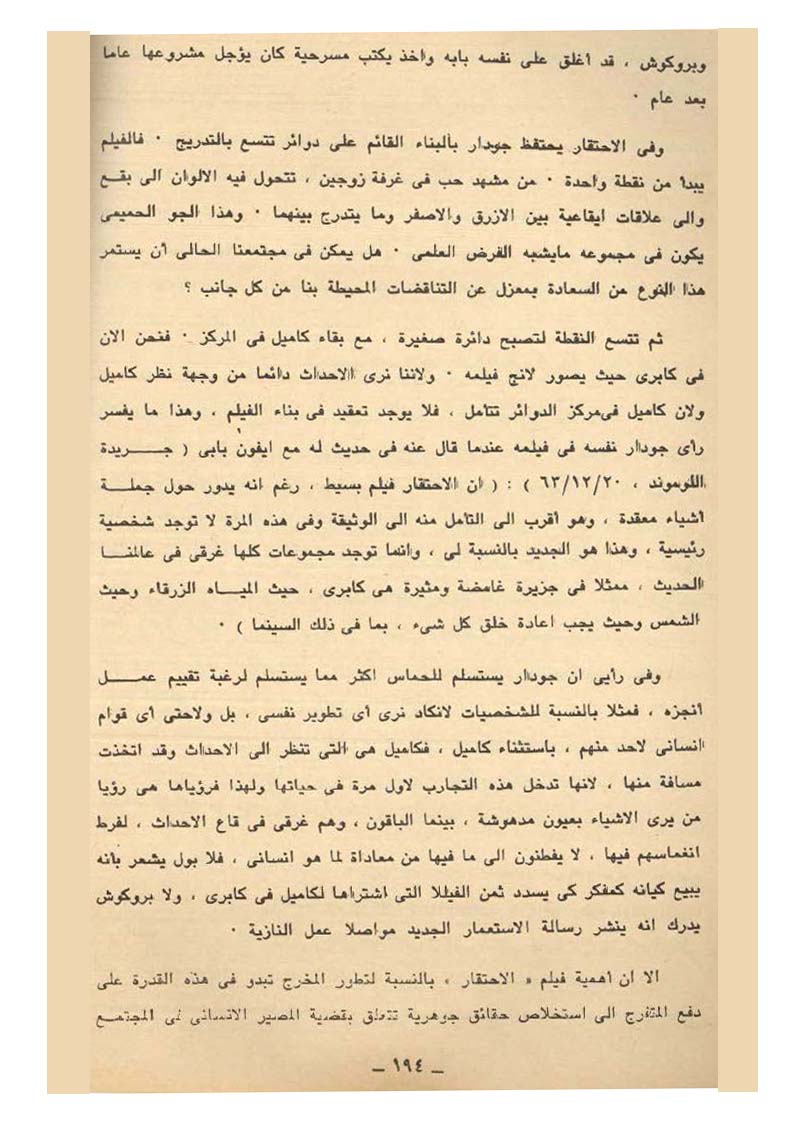 وبروكوش ، قد أغلق على نفسه بابه واخذ يكتب مسرحية كان يؤجل مشروعها عاما
بعد عام ٠
وفى الاحتقار يحتفظ جودار بالبناء القائم على دوائر تتسع بالتدريج ٠ فالفيلم
يبدأ من نقطة واحدة ٠ من مشهد حب فى غرفة زوجين ، تتحول فيه الالوان الى بقــع
والى علاقات ايقاعية بين الازرق والاصفر وما يتدرج بينهما ٠ وهذا الجو الحميمى
يكون فى مجموعه مايشبه الفرض العلمى ٠ هل يمكن فى مجتمعنا الحالى أن يستمر
هذا النوع من السعادة بمعزل عن التناقضات المحيطة بنا من كل جانب ؟
ثم تتسع النقطة لتصبح دائرة صغيرة ، مع بقاء كاميل فى المركز ٠ فنحن الان
فى كابرى حيث يصور لانج فيلمه ٠ ولاننا نرى الاحداث دائما من وجهة نظر كاميل
ولان كاميل فى مركز الدوائر تتأمل ، فلا يوجد تعقيد فى بناء الفيلم ، وهذا ما يفسر
رأى جودار نفسه فى فيلمه عندما قال عنه فى حديث له مع ايفون بابى ( جـــريدة
اللوموند ، ٦٣/١٢/٢٠ ) : ( ان الاحتقار فيلم بسيط ، رغم انه يدور حول جملــة
أشياء معقدة ، وهو أقرب الى التأمل منه الى الوثيقة وفى هذه المرة لا توجد شخصية
رئيسية ، وهذا هو الجديد بالنسبة لى ، وانما توجد مجموعات كلها غرقى فى عالمنــا
الحديث ، ممثلا فى جزيرة غامضة ومثيرة هى كابرى ، حيث الميــاه الزرقاء وحيث
الشمس وحيث يجب اعادة خلق كل شىء ، بما فى ذلك السينما ) ٠
وفى رأيى ان جودار يستسلم للحماس اكثر مما يستسلم لرغبة تقييم عمــــل
أنجزه ، فمثلا بالنسبة للشخصيات لانكاد نرى أى تطوير نفسى ، بل ولاحتى أى قوام
انسانى لاحد منهم ، باستثناء كاميل ، فكاميل هى التى تنظر الى الاحداث وقد اتخذت
مسافة منها ، لانها تدخل هذه التجارب لاول مرة فى حياتها ولهذا فرؤياها هى رؤيا
من يرى الاشياء بعيون مدهوشة ، بينما الباقون ، وهم غرقى فى قاع الاحداث ، لفرط
انغماسهم فيها ، لا يفطنون الى ما فيها من معاداة لما هو انسانى ، فلا بول يشعر بأنه
يبيع كيانه كمفكر كى يسدد ثمن الفيللا التى اشتراها لكاميل فى كابرى ، ولا بروكوش
يدرك انه ينشر رسالة الاستعمار الجديد مواصلا عمل النازية ٠
الا ان أهمية فيلم « الاحتقار » بالنسبة لتطور المخرج تبدو فى هذه القدرة على
دفع المتفرج الى استخلاص حقائق جوهرية تتعلق بقضية المصير الانسانى فى المجتمــع
ــ ١٩٤ ــ